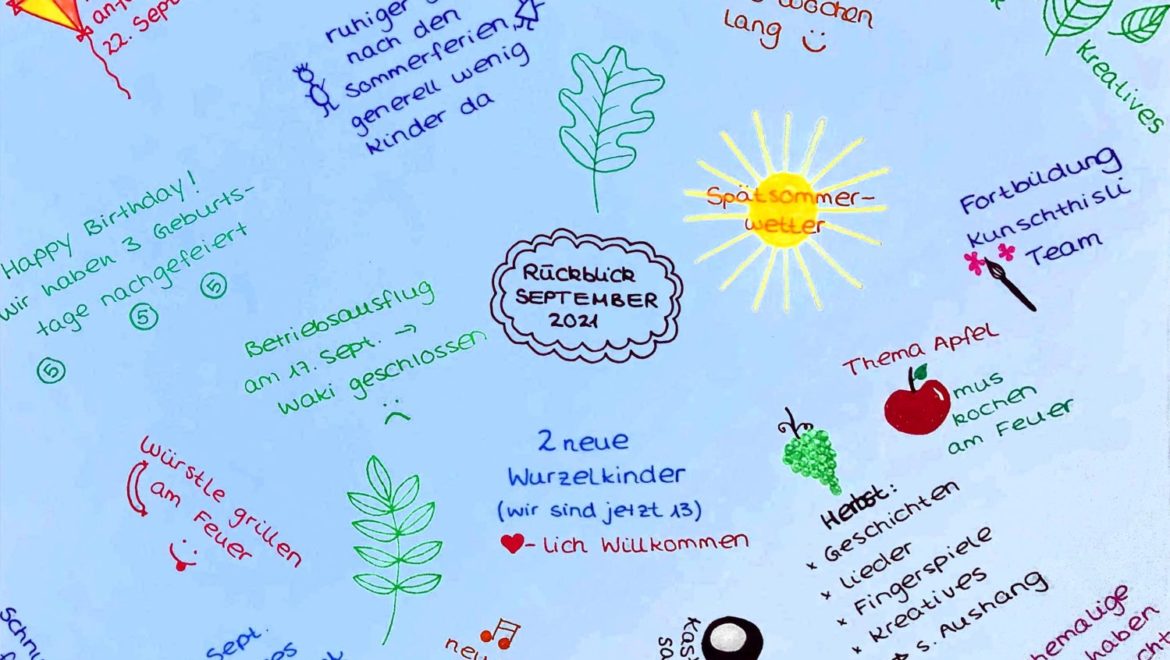 22. Sept
ruhiger
nach den
sommerferien
generell wenig
Kinder da
Wochen
Lang
Kreatives
Happy Birthday!
wir haben 3 Geburts-
tage nachgefeiert
5
5
5
Spätsommer-
wetter
Fortbildung
Kunschthisli
Team
Rückblick
SEPTEMBER
2021
Betriebsausflug
am 17. Sept. →
waki geschlossen
Thema Apfel
mus
kochen
am Feuer
Würstle grillen
am Feuer
2 neue
Wurzelkinder
(wir sind jetzt 13)
-lich Willkommen
Herbst:
x Geschichten
x Lieder
x Fingerspiele
x Kreatives
s. Aushang
Sept.
neu
haben